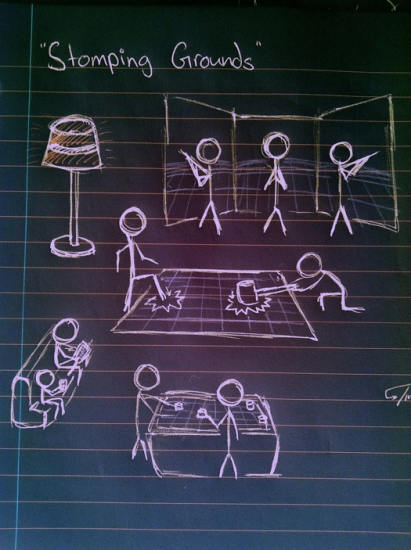 "Stomping Grounds"